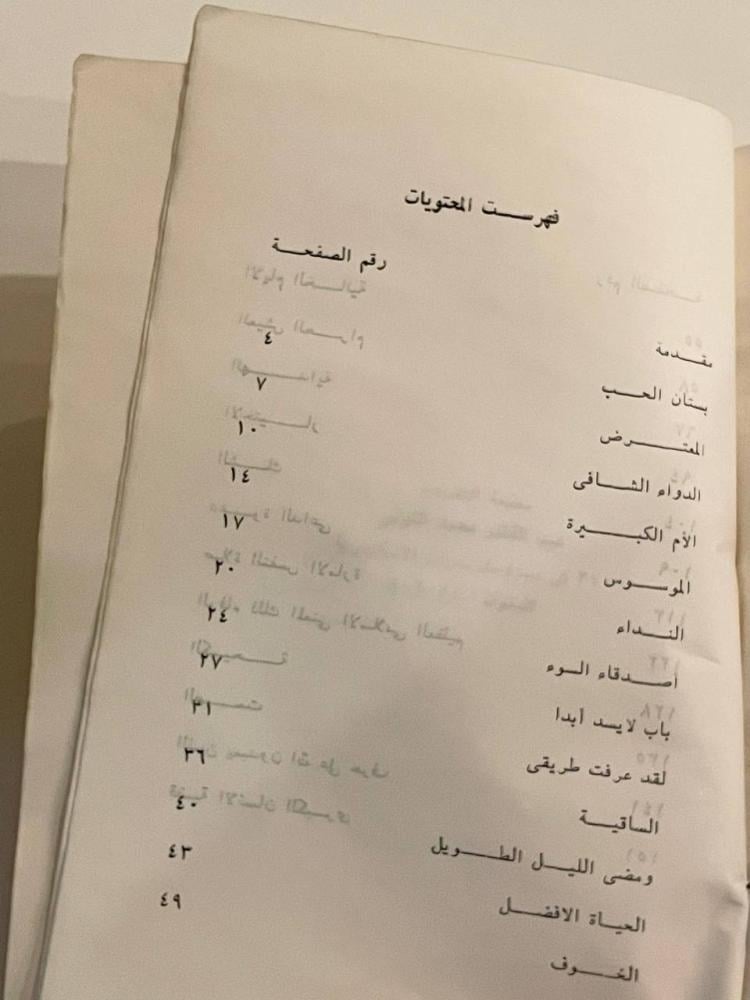 فهرست المحتويات
رقم الصفحة
مقدمة
بستان الحب ٤
المعترض ٧
الدواء الشافى ١٠
الأم الكبيرة ١٤
الموسوس ١٧
النداء ٢٠
أصدقاء السوء ٢٤
باب لايسد أبدا ٢٧
لقد عرفت طريقى ٣١
الساقية ٣٦
ومضى الليل الطويل ٤٠
الحياة الافضل ٤٣
الخوف ٤٩